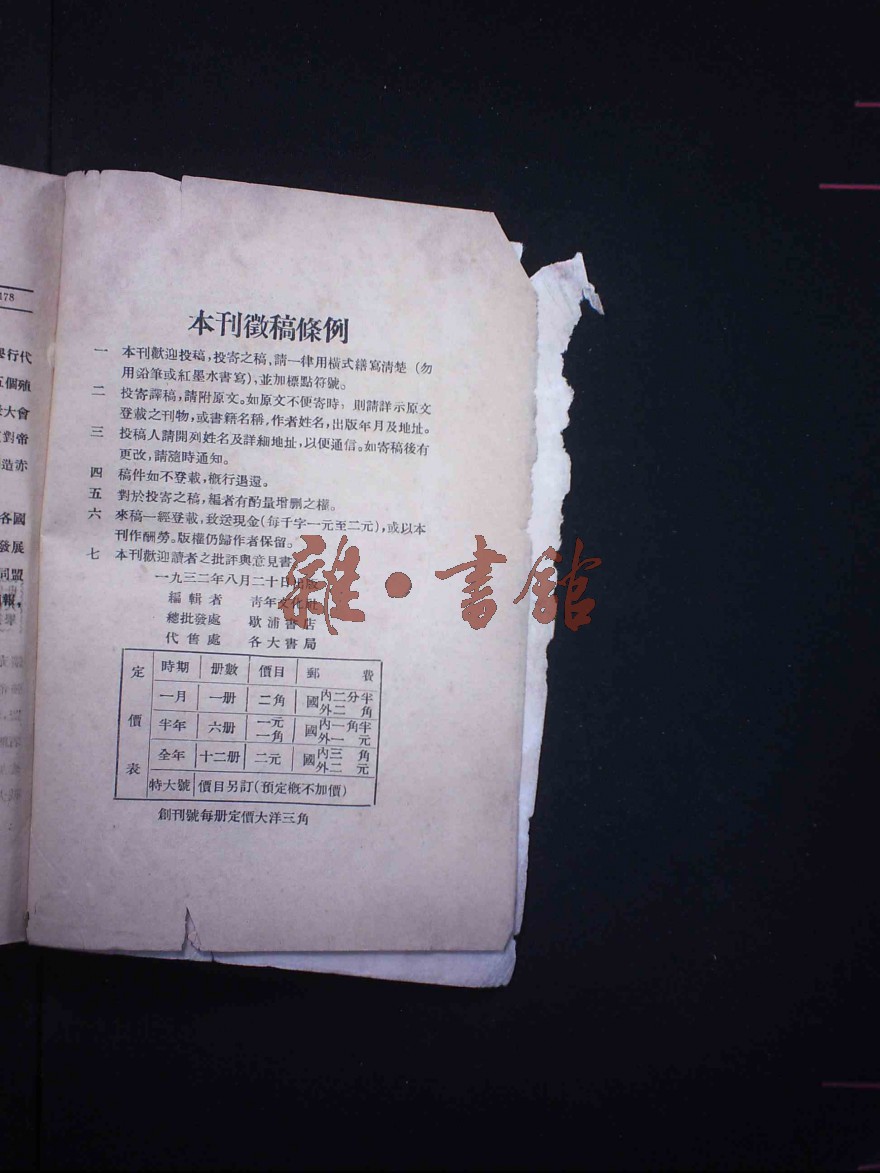 178
與行代
五個殖
大會
對帝
造赤
各國
發展
同盟
報,
本刊徵稿條例
一 本刊歡迎投稿,投寄之稿,請一律用橫式繕寫清楚(勿
用沿筆或紅墨水書寫),並加標點符號。
二 投寄譯稿,請附原文。如原文不便寄時,則請詳示原文
登載之刊物,或書籍名稱,作者姓名,出版年月及地址。
三 投稿人請開列姓名及詳細地址,以便通信。如寄稿後有
更改,請隨時通知。
四 稿件如不登載,概行退還。
五 對於投寄之稿,編者有酌量增删之權。
六 來稿一經登載,致送現金(每千字一元至二元),或以本
刊作酬勞。版權仍歸作者保留。
七 本刊歡迎讀者之批評與意見書
一九三二年八月二十日出版
編輯者 靑年文化社
總批發處 歇浦書店
代售處 各大書局
定價表
時期 册數 價目 郵費
一月 一册 二角 國內二分半 外二角
半年 六册 一元一角 國內一角半 外一元
全年 十二册 二元 國內三角 外二元
特大號 價目另訂(預定概不加價)
創刊號每册定價大洋三角
雜·書館